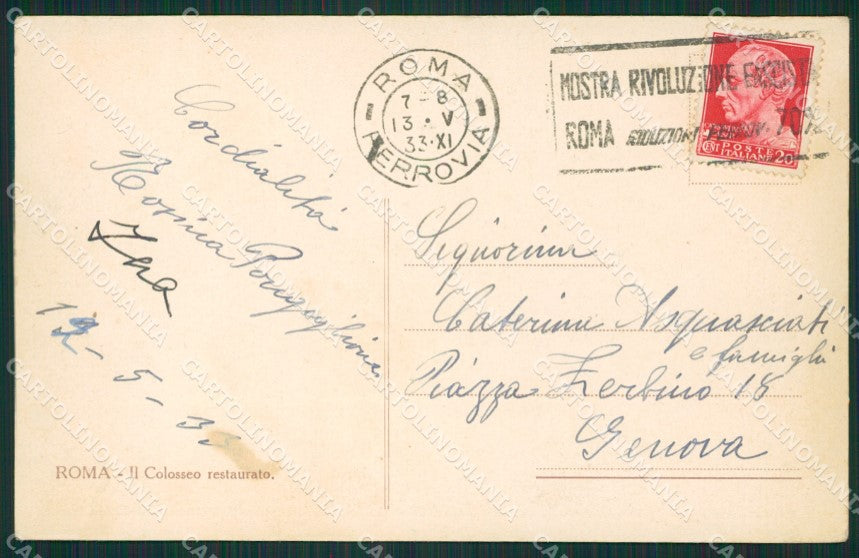 ROMA
7-8
13 · V
33·XI
FERROVIA
MOSTRA RIVOLUZIONE
ROMA RIDUZIONI 70%
POSTE
ITALIANE
CENT 20
Cordialità
Rosina
Ina
12-5-33
Signorina
Caterina Acquasciati
e famiglia
Piazza Zerbino 18
Genova
ROMA - Il Colosseo restaurato.
CARTOLINOMANIA